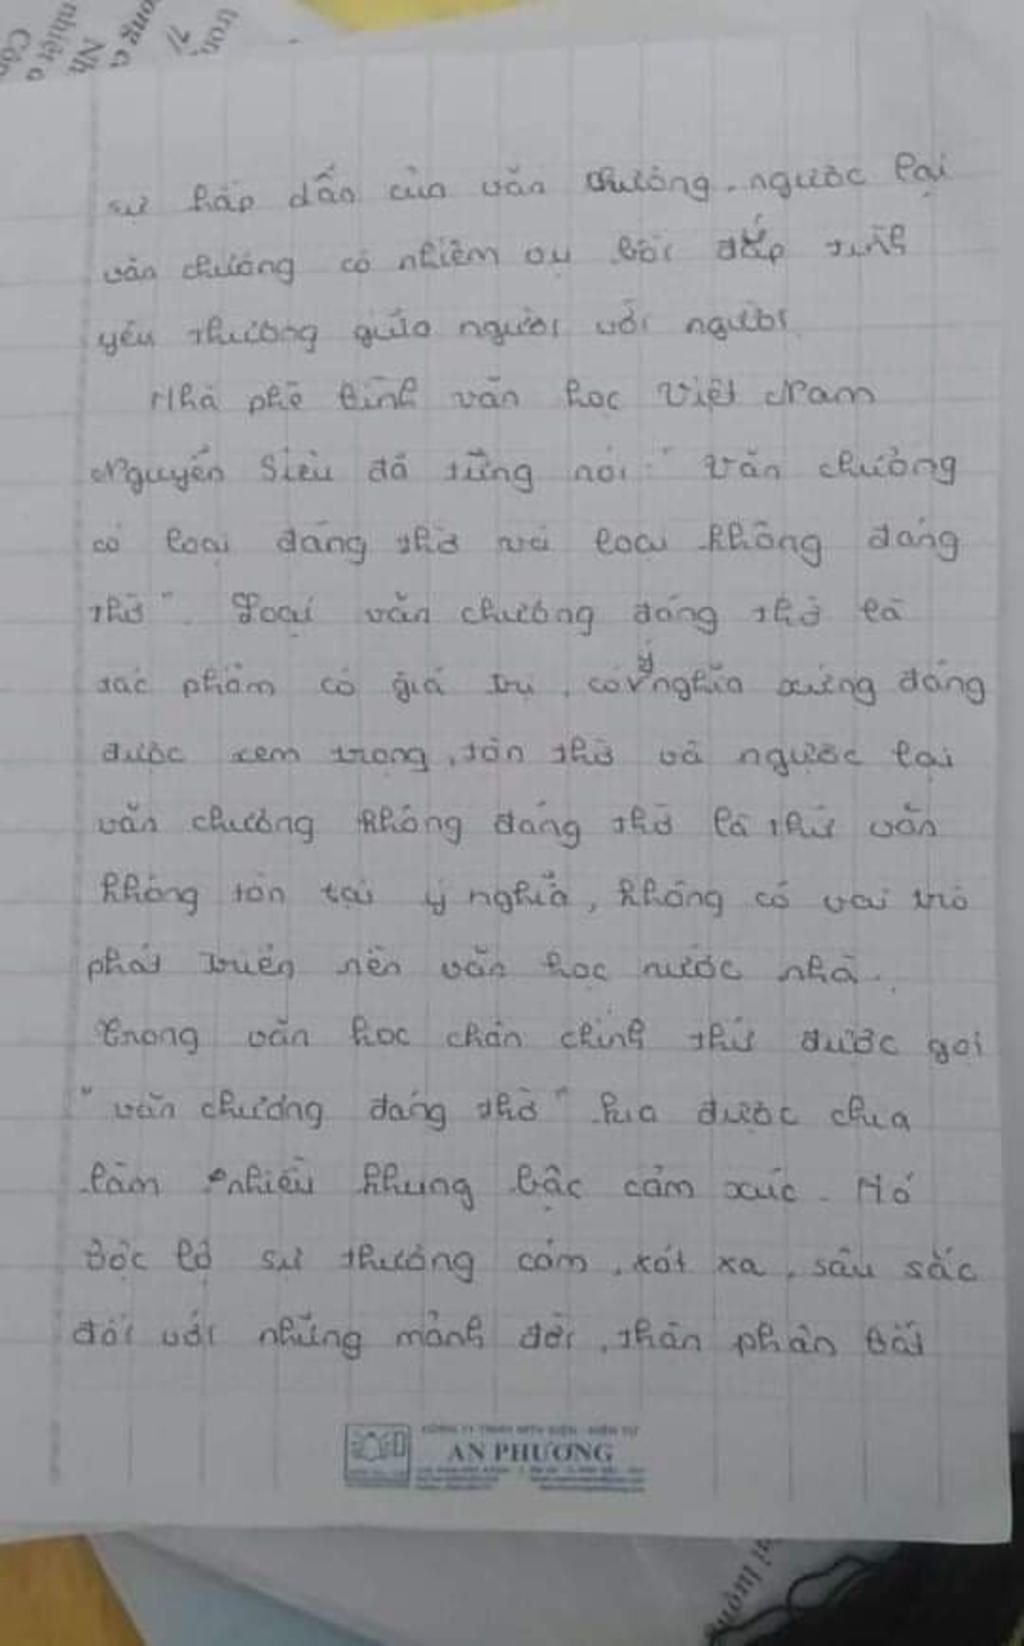 ong c
Nh
nhiệt
sự hấp dẫn của văn chương, ngược lại
văn chương có nhiệm vụ bồi đắp tình
yêu thương giữa người với người
Nhà phê bình văn học Việt Nam
Nguyễn Siêu đã từng nói: "Văn chương
có loại đáng thờ và loại không đáng
thờ". Loại văn chương đáng thờ là
tác phẩm có giá trị, có ý nghĩa xứng đáng
được xem trọng, tôn thờ và ngược lại
văn chương không đáng thờ là thứ văn
không tồn tại ý nghĩa, không có vai trò
phát triển nền văn học nước nhà.
Trong văn học chân chính thứ được gọi
"văn chương đáng thờ" lưa được chưa
lắm nhiều khung bậc cảm xúc. Nó
bộc lộ sự thương cảm, xót xa, sâu sắc
đối với những mảnh đời, thân phận bất
AN PHƯƠNG